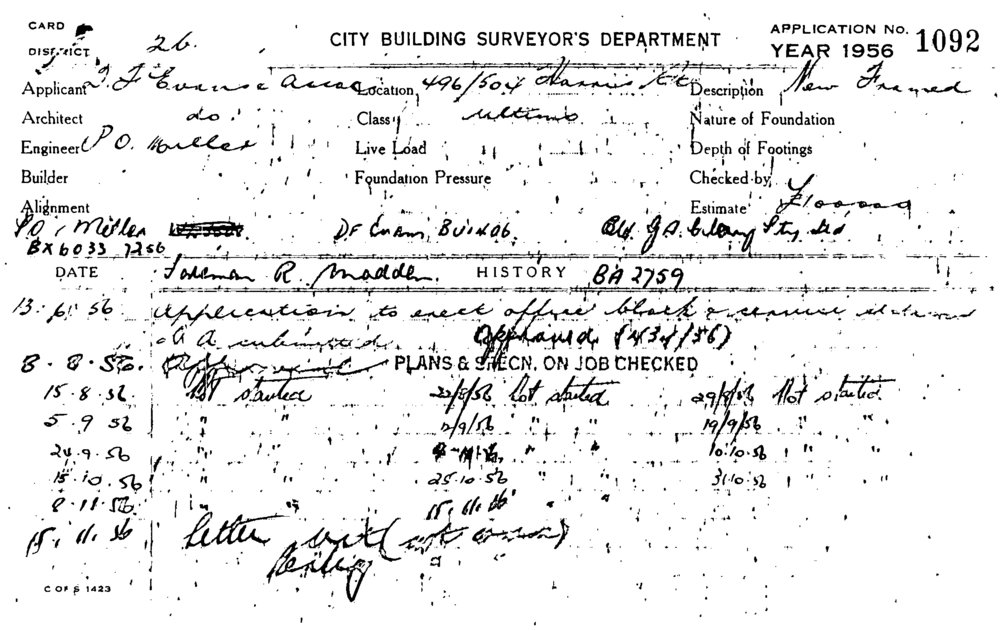 CARD
DISTRICT 26. CITY BUILDING SURVEYOR'S DEPARTMENT APPLICATION No. 1092
YEAR 1956
Applicant D F Evans & Assoc Location 496/504 Harris St Description New Framed
Architect do. Class Ultimo Nature of Foundation
Engineer P O. Miller Live Load Depth of Footings
Builder Foundation Pressure Checked by
Alignment Estimate £100000
P.O. Miller D F Evans, Bld G.A. Pty Ltd
BX6033 7256
DATE Foreman R. Madden. HISTORY BA 2759
13. 6. 56 Application to erect office block &
submitted. Approved (434/56)
8. 8. 56. PLANS & SPECN. ON JOB CHECKED
15. 8. 56 Not started 22/8/56 Not started 29/8/56 Not started
5. 9 56 " " 12/9/56 " " 19/9/56 " "
24. 9. 56 " " " " 10.10.56 " "
15. 10. 56 " " 25.10.56 " " 31.10.56 " "
8. 11. 56 " " 15. 11. 56 " "
15. 11. 56 Letter
C OF S 1423